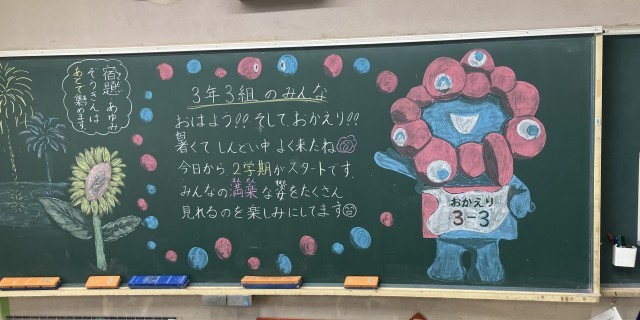 宿題 あゆみ
ぞうきんは
あとで集めます。
3年3組のみんな
おはよう!! そして、おかえり!!
暑くてしんどい中 よく来たね
今日から 2学期がスタートです。
みんなの満葉な姿をたくさん
見れるのを楽しみにしてます
おかえり
3-3